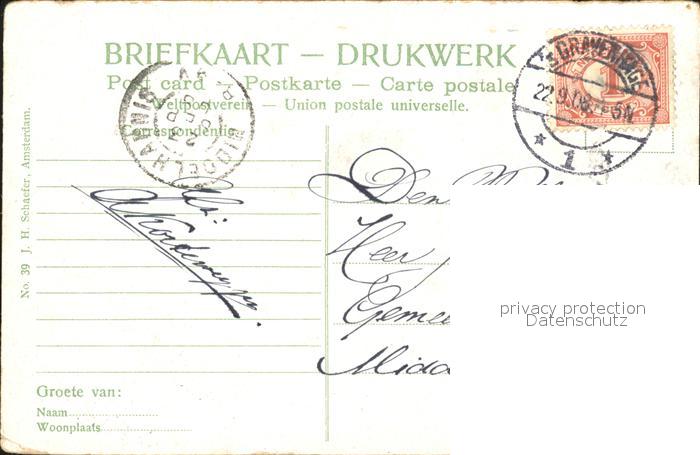 BRIEFKAART — DRUKWERK
Post card — Postkarte — Carte postale
Weltpostverein — Union postale universelle.
Correspondentie
MIDDELHARNIS
'S GRAVENHAGE
22.9.08
1
1
Den
Heer
Gemee
Midd
No. 39 J. H. Schaefer, Amsterdam.
Groete van:
Naam
Woonplaats
privacy protection
Datenschutz